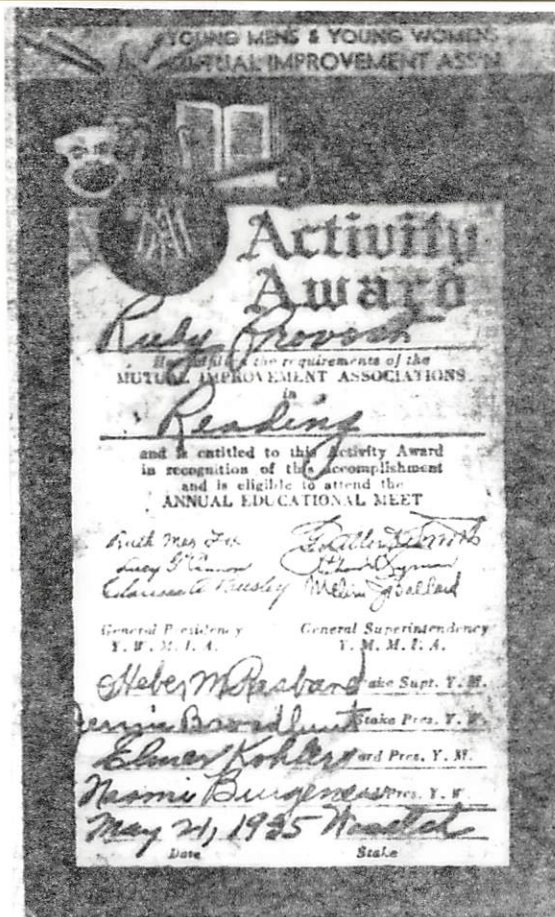 YOUNG MENS & YOUNG WOMENS
MUTUAL IMPROVEMENT ASS'N
MIA
Activity
Award
Ruby Provost
the requirements of the
MUTUAL IMPROVEMENT ASSOCIATIONS
in
Reading
and is entitled to this Activity Award
in recognition of this accomplishment
and is eligible to attend the
ANNUAL EDUCATIONAL MEET
Ruth May Fox
Lucy G Cannon
Clarissa A Beesley
Richard R Lyman
Melvin J Ballard
General Presidency
Y. W. M. I. A.
General Superintendency
Y. M. M. I. A.
Heber M Rasband Stake Supt. Y. M.
Jennie Broadbent Stake Pres. Y. W.
Elmer Kohler Ward Pres. Y. M.
Naomi Burgener Pres. Y. W.
May 21, 1935 Wasatch
Date Stake